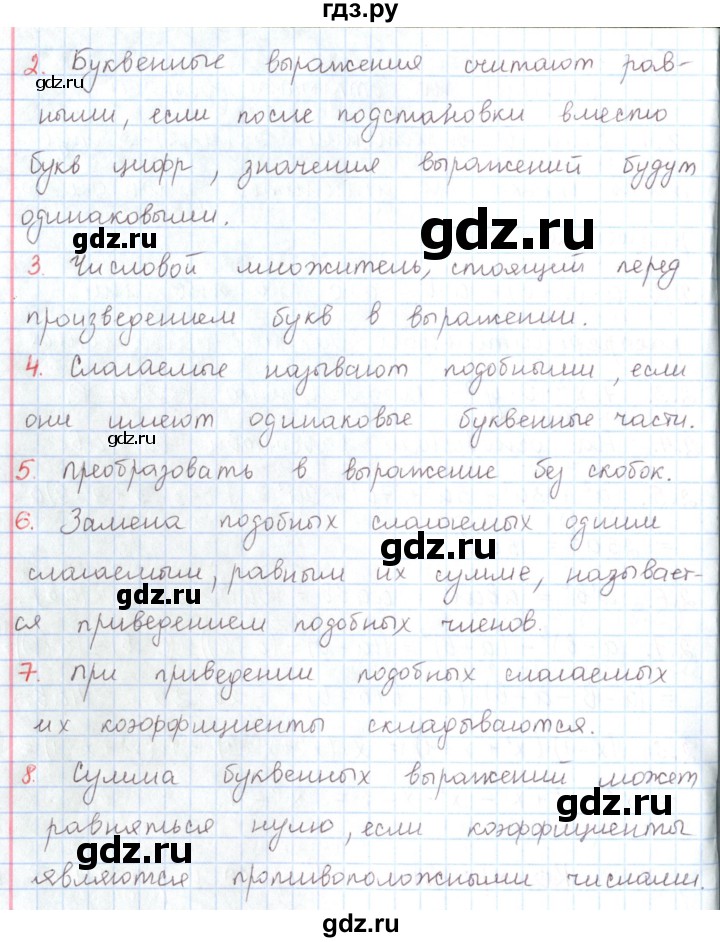 гдз.ру
2. Буквенные выражения считают рав-
gdz.ru
ными, если после подстановки вместо
букв цифр, значения выражений будут
одинаковыми.
gdz.ru
gdz.ru
3. Числовой множитель, стоящий перед
произведением букв в выражении.
4. Слагаемые называют подобными, если
они имеют одинаковые буквенные части.
gdz.ru
5. Преобразовать в выражение без скобок.
6. Замена подобных слагаемых одним
gdz.ru
слагаемым, равным их сумме, называет-
gdz.ru
ся приведением подобных членов.
7. При приведении подобных слагаемых
их коэффициенты складываются.
8. Сумма буквенных выражений может
gdz.ru
равняться нулю, если коэффициенты
gdz.ru
являются противоположными числами.
gdz.ru